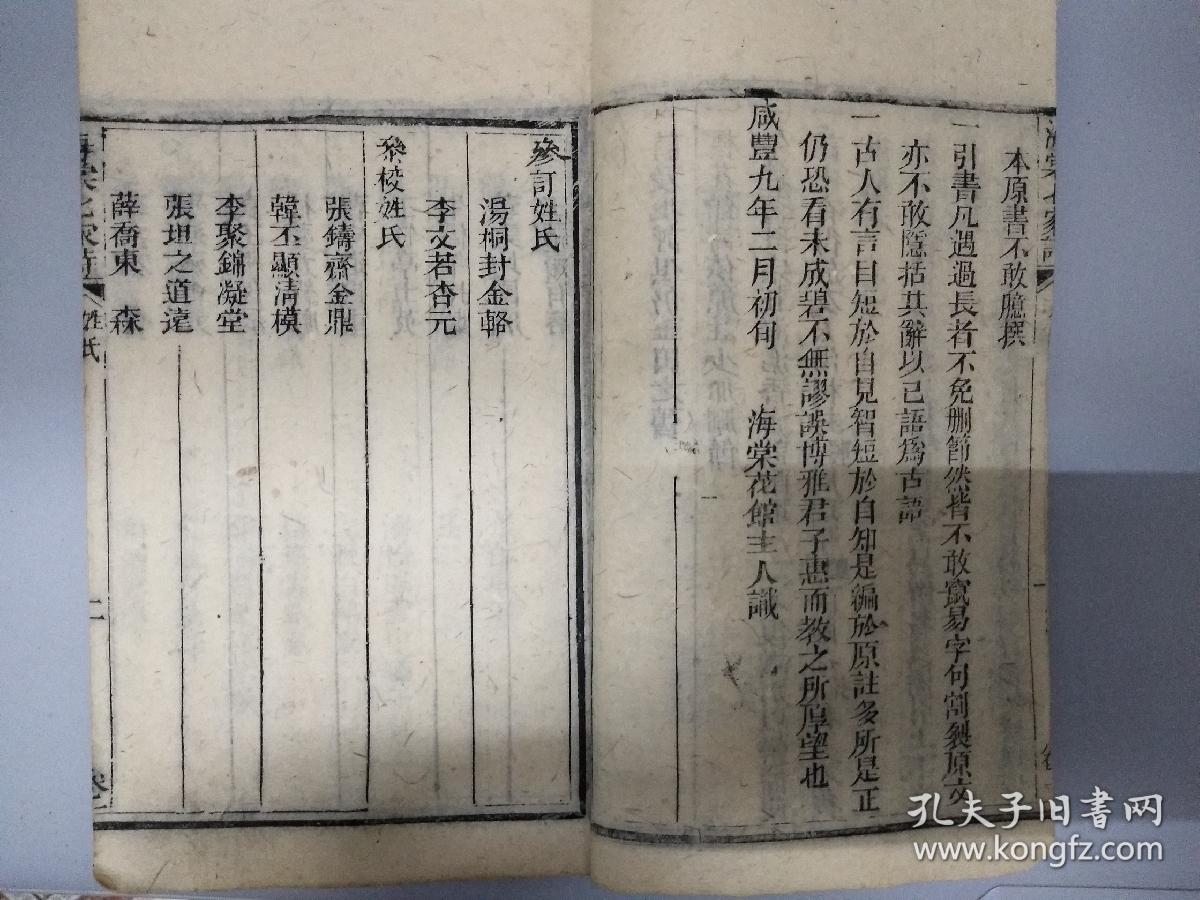 本原書不敢臆撰
一引書凡遇過長者不免刪節然皆不敢竄易字句割裂原文
亦不敢隱括其辭以己語爲古語
一古人有言目短於自見智短於自知是編於原註多所是正
仍恐看朱成碧不無謬誤博雅君子惠而教之所厚望也
咸豐九年二月初旬 海棠花館主人識
參訂姓氏
湯桐封金輅
李文若杏元
叅校姓氏
張鑄齋金鼎
韓丕顯清模
李聚錦凝堂
張坦之道遠
薛喬東 森
姓氏 二
孔夫子旧书网
www.kongfz.com